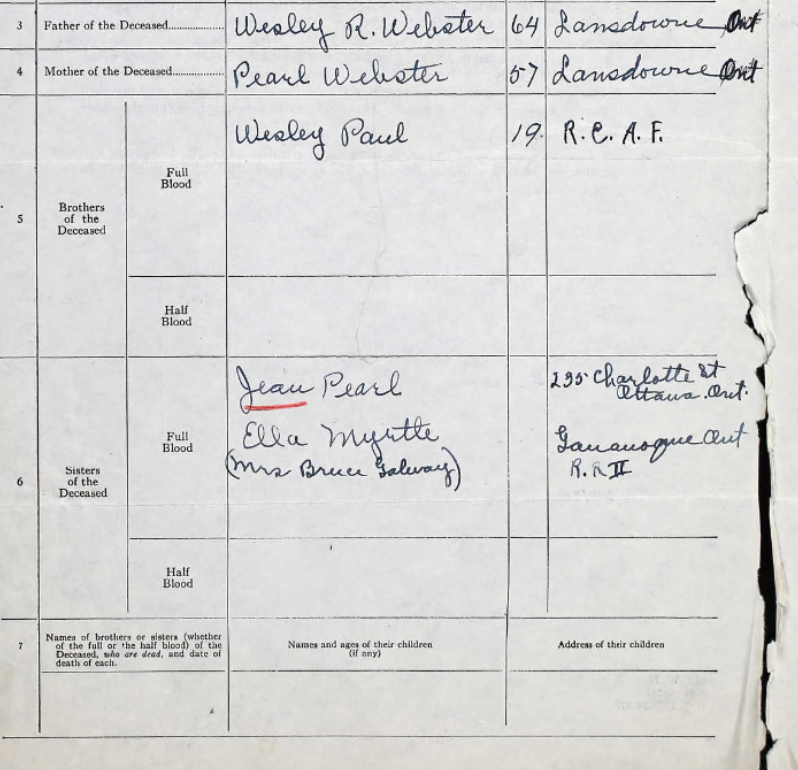 3 Father of the Deceased.................... Wesley R. Webster 64 Lansdowne Ont
4 Mother of the Deceased.................. Pearl Webster 57 Lansdowne Ont
5 Brothers of the Deceased
Full Blood
Wesley Paul 19. R.C.A.F.
Half Blood
6 Sisters of the Deceased
Full Blood
Jean Pearl 295 Charlotte St
Ottawa. Ont.
Ella Myrtle Gananoque Ont
(Mrs Bruce Galway) R.R II
Half Blood
7 Names of brothers or sisters (whether
of the full or the half blood) of the
Deceased, who are dead, and date of
death of each.
Names and ages of their children
(if any)
Address of their children